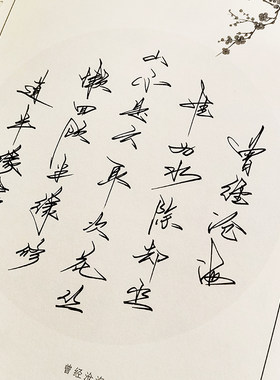 曾經沧海
難为水除却巫
山不是云取次花丛
懒回顾半缘修
道半缘
曾经沧